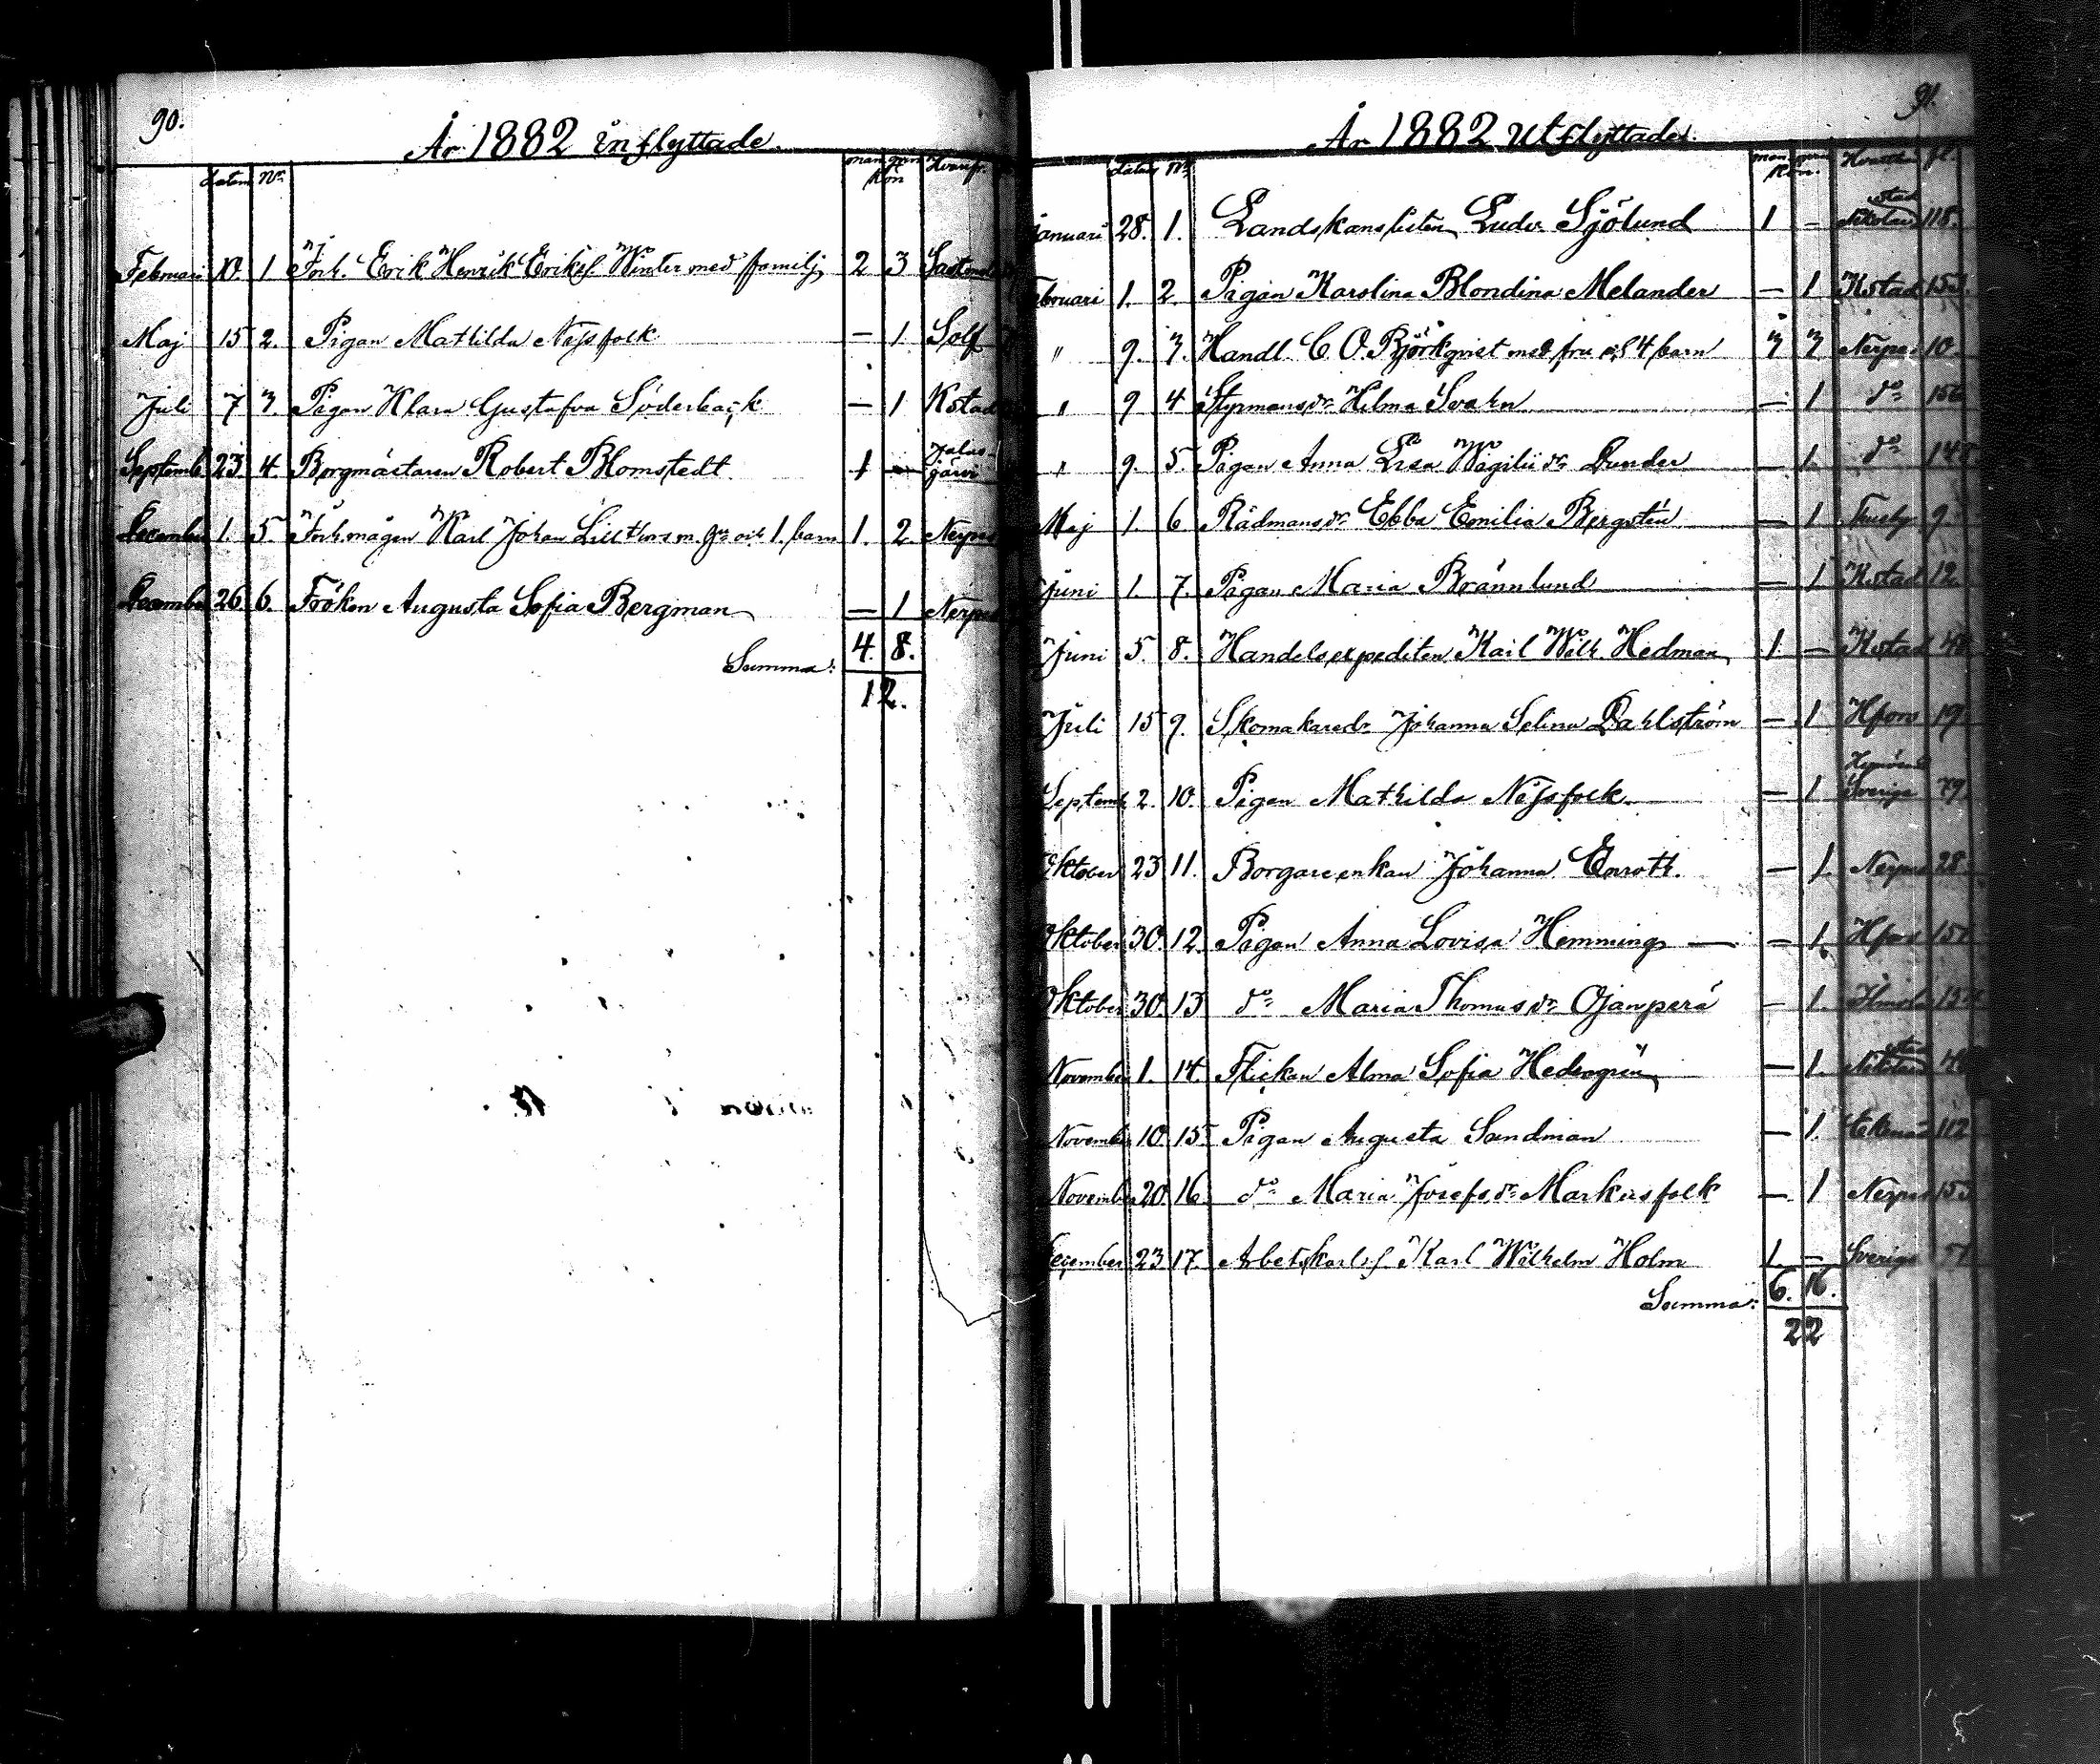 90.
År 1882 inflyttade
datum No. man qvin Kön Hvarifr.
Februari 10. 1 Inh. Erik Henrik Eriks. Winter med familj 2 3
Maj 15 2. Pigan Mathilda Nessfolk — 1. Solf
Juli 7 3. Pigan Klara Gustafva Söderback — 1 Kstad
Septemb. 23. 4. Borgmästaren Robert Blomstedt 1 — Jalasjärvi
December 1. 5. Inh. mågen Karl Johan Lillthors m. h:u och 1. barn 1. 2. Nerpes
December 26. 6. Fröken Augusta Sofia Bergman — 1 Nerpes
Summa: 4. 8.
12.
91.
År 1882 Utflyttade.
datum No. man qvin Kön. Hvarthän
Januari 28. 1. Landskanslisten Ludv. Sjölund 1 — Nikolaistad 118.
Februari 1. 2 Pigan Karolina Blondina Melander — 1 Kstad 153.
" 9. 3. Handl. C. O. Björkqvist med fru och 4 barn 3 3 Nerpes 10.
" 9 4 Styrmansdr. Hilma Svahn — 1 do 156
" 9. 5. Pigan Anna Lisa Wigilii dr. Dunder — 1. do
Maj 1. 6 Rådmansdr. Ebba Emilia Bergstén — 1 9
Juni 1. 7. Pigan Maria Brännlund — 1 Kstad 12.
Juni 5. 8. Handelsexpediten Karl Wilh. Hedman 1. — Kstad
Juli 15 9. Skomakaredr. Johanna Selina Dahlström — 1 Hfors 19.
Septemb. 2. 10. Pigan Mathilda Nessfolk — 1 Sverige 79.
Oktober 23 11. Borgareenkan Johanna Enroth. — 1. Nerpes 28.
Oktober 30. 12. Pigan Anna Lovisa Hemming — — 1. Hfors
Oktober 30. 13 do Maria Thomasdr. Ojanperä — 1. Ilmola
November 1. 14. Flickan Alma Sofia Hedengrén — 1. Nikolaistad
November 10. 15. Pigan Augusta Sandman — 1. 112
November 20. 16. do Maria Josefsdr. Markusfolk — 1 Nerpes
December 23 17. Arbetskarls. Karl Wilhelm Holm 1. — Sverige
Summa: 6. 16.
22